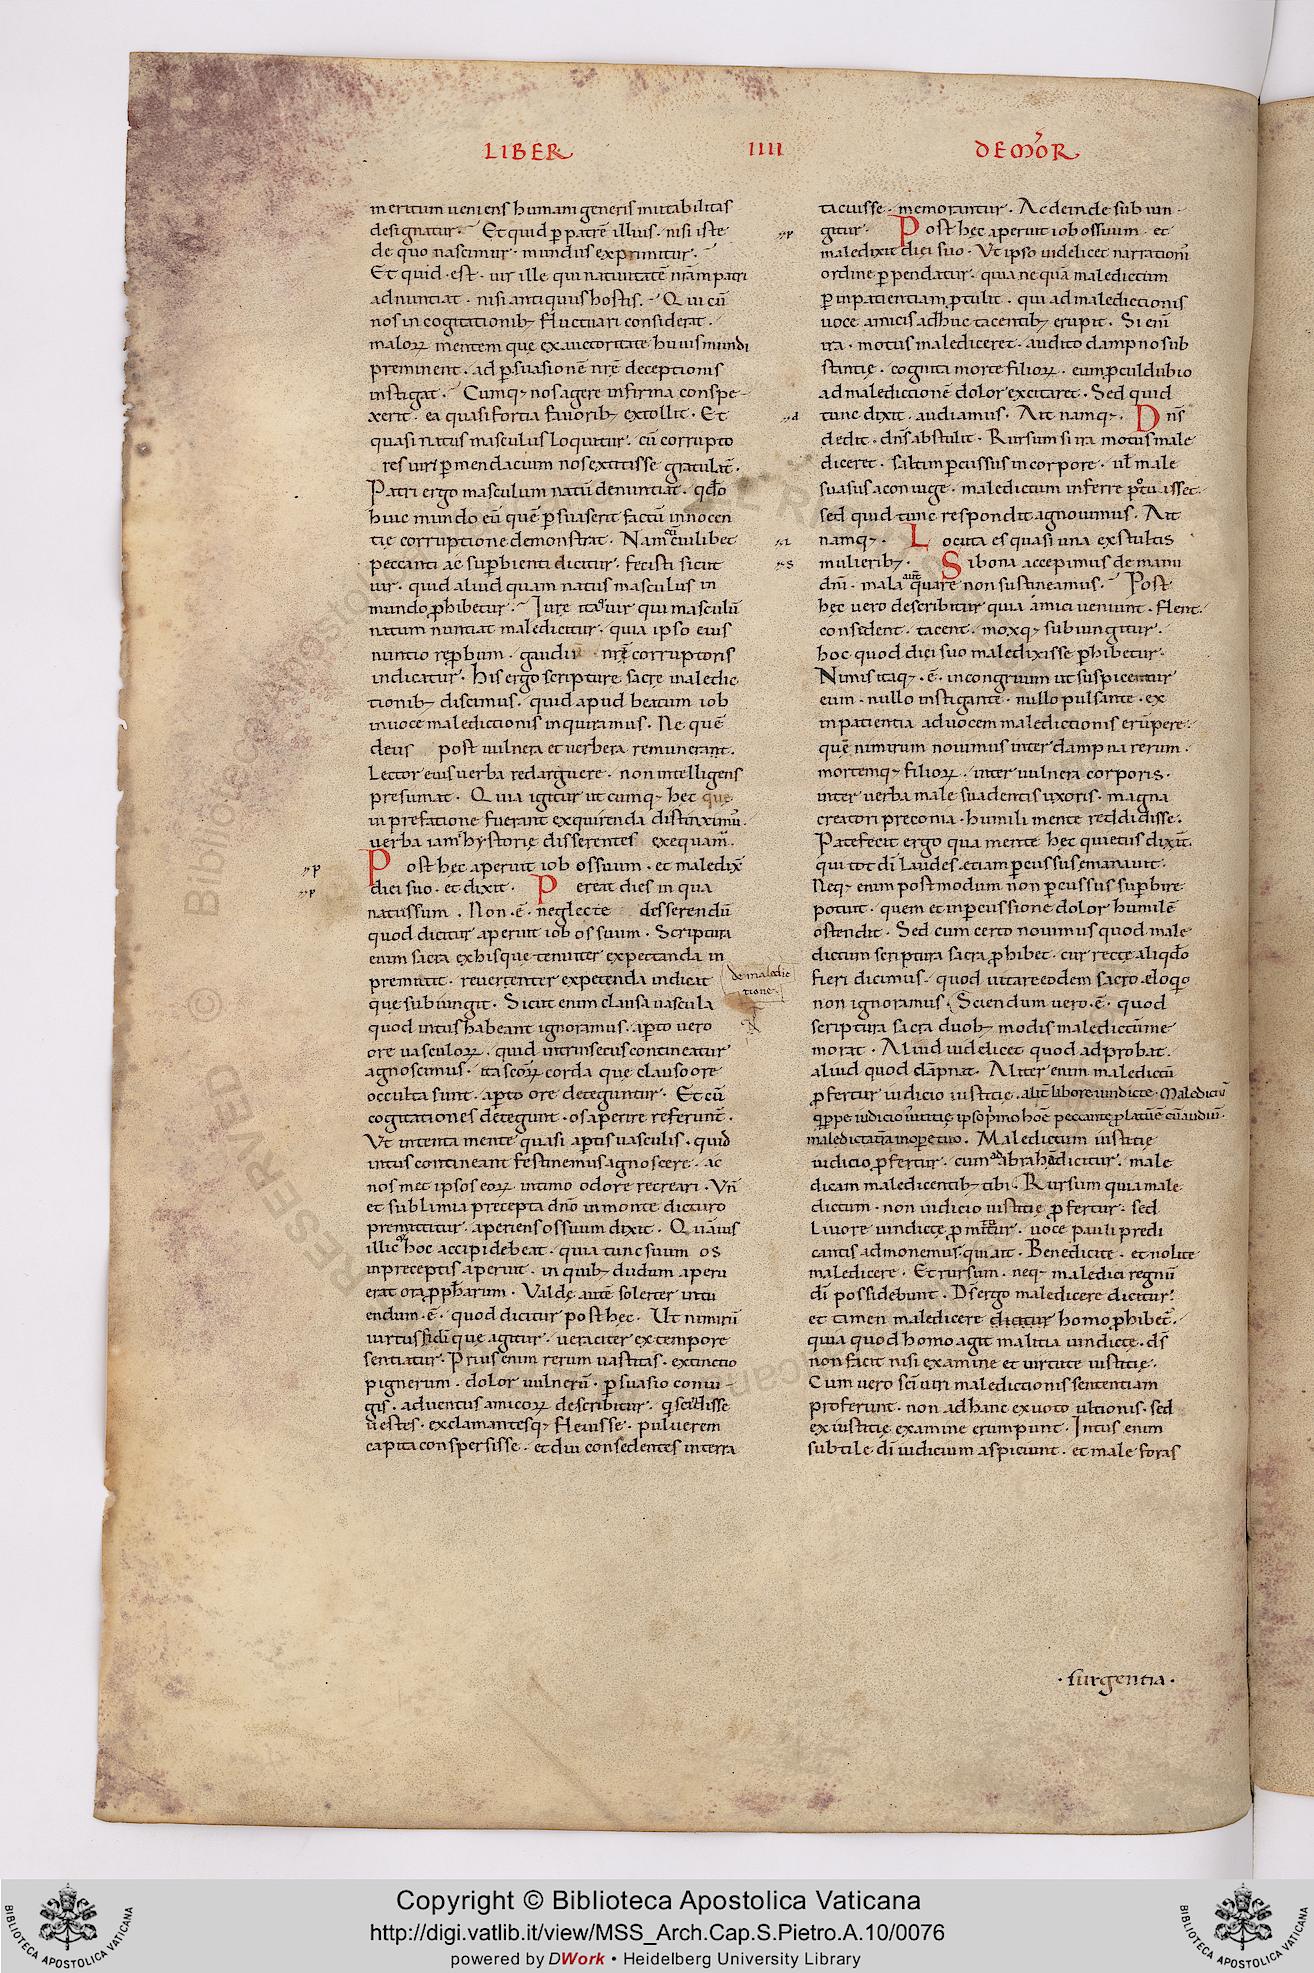 LIBER IIII DE MOR̄
meritum ueniens humani generis mutabilitas
designatur. Et quid p̄ patrē illius. nisi iste
de quo nascimur. mundus exprimitur.
Et quid. est. uir ille qui natiuitatē nr̄am patri
adnuntiat. nisi antiquus hostis. Qui cū
nos in cogitationibꝫ fluctuari considerat.
maloꝝ mentem quę ex auctoritate huius mundi
preminent. ad p̄suasionē nrē deceptionis
instigat. Cumqꝫ nos agere infirma conspe-
xerit. ea quasi fortia fauoribꝫ extollit. Et
quasi natus masculus loquitur. cū corrupto
res uiri p̄ mendacium nos extitisse gratulat̄.
Patri ergo masculum natū denuntiat̄. qdo
huic mundo eū quē p̄suaserit factū innocen
tię corruptione demonstrat. Nam cū cuilibet
peccanti ac sup̄bienti dicitur. fecisti sicut
uir. quid aliud quam natus masculus in
mundo p̄hibetur. Iure itaqꝫ uir qui masculū
natum nuntiat maledicitur. quia ipso eius
nuntio rep̄bum. gaudiū nrę̄ corruptoris
indicatur. His ergo scripturę sacrę maledic
tionibꝫ discimus. quid apud beatum iob
in uoce maledictionis inquiramus. Ne quē
deus post uulnera et uerbera remunerant.
Lector eius uerba redarguere. non intelligens
presumat. Quia igitur utcumqꝫ hęc que
in prefatione fuerant exquirenda distinximus.
uerba iam hystorię disserentes exequam̄.
Post hęc aperuit iob os suum. et maledix̄
diei suo. et dixit. Pereat dies in qua
natus sum. Non. ē. neglecte disserendū
quod dicitur aperuit iob os suum. Scriptura
enim sacra ex his que tenuiter expectanda in
premittit. reuerenter expetenda indicat
que subiungit. Sicut enim clausa uascula
quod intus habeant ignoramus. ap̄to uero
ore uasculoꝝ. quid intrinsecus contineatur
agnoscimus. ita scōꝝ corda quę clauso ore
occulta sunt. ap̄to ore deteguntur. Et cū
cogitationes detegunt. os aperire referunt̄.
Vt intenta mente quasi ap̄tis uasculis. quid
intus contineant festinemus agnoscere. ac
nos met ipsos eoꝝ intimo odore recreari. Vn̄
et sublimia precepta dn̄o in monte dicturo
premittitur. aperiens os suum dixit. Quāuis
illic qꝫ hoc accipi debeat. quia tunc suum os
in preceptis aperuit. in quibꝫ dudum aperu
erat ora pp̄harum. Valdę autē solerter intu
endum. ē. quod dicitur post hęc. Ut nimirū
uirtus fidī que agitur. ueraciter ex tempore
sentiatur. Prius enim rerum uastitas. extinctio
pignerum. dolor uulnerū. p̄suasio coniu-
gis. aduentus amicoꝝ describitur. q scidisse
uestes. exclamantesqꝫ fleuisse. puluerem
capita conspersisse. et diu consedentes in terra
de maledic
tione.
tacuisse. memorantur. Ac deinde subiun-
gitur. Post hęc aperuit iob os suum. et
maledixit diei suo. Vt ipso uidelicet narrationī
ordine p̄pendatur. quia nequā maledictum
p̄ inpatientiam p̄tulit. qui ad maledictionis
uoce amicis adhuc tacentibꝫ erupit. Si enī
ira. motus malediceret. audito dampno sub
stantię. cognita morte filioꝝ. eum p̄culdubio
ad maledictionē dolor excitaret. Sed quid
tunc dixit. audiamus. Ait namqꝫ. Dn̄s
dedit. dn̄s abstulit. Rursum si ira motus male
diceret. saltim p̄cussus in corpore. ul̄ male
suasus a coniuge. maledictum inferre p̄tuisset.
sed quid tunc respondit agnouimus. Ait
namqꝫ. Locuta es quasi una ex stultis
mulieribꝫ. Si bona accepimus de manu
dn̄i. mala aut̄ quare non sustineamus. Post
hęc uero describitur quia amici ueniunt. flent.
consident. tacent. moxqꝫ subiungitur.
hoc quod diei suo maledixisse p̄hibetur.
Nimis itaqꝫ. ē. incongruum ut suspicemur
eum. nullo instigante. nullo pulsante. ex
inpatientia ad uocem maledictionis erūpere.
quē nimirum nouimus inter dampna rerum.
mortemqꝫ filioꝝ. inter uulnera corporis.
inter uerba male suadentis uxoris. magna
creatori preconia. humili mente reddidisse.
Patefecit ergo qua mente hęc quietus dixit̄.
qui tot dī laudes. etiam p̄cussus emanauit.
Neqꝫ enim post modum non p̄cussus sup̄bire
potuit. quem et in p̄cussione dolor humilē
ostendit. Sed cum certo nouimus quod male
dictum scriptura sacra p̄hibet. cur recte aliqdo
fieri dicimus. quod uitare eodem sacro eloqio
non ignoramus. Sciendum uero. ē. quod
scriptura sacra duobꝫ modis maledictū me
morat. Aliud uidelicet quod adprobat.
aliud quod dāpnat. Aliter enim maledictū
p̄fertur iudicio iustitię. alit̄ libore uindictę. Maledictū
qppe iudicio iustitię ipso p̄mo hoīē peccante p̄latū ē cū audiuit.
maledicta tr̄a in op̄e tuo. Maledictum iustitię
iudicio p̄fertur. cum ad abrahā dicitur. male
dicam maledicentibꝫ tibi. Rursum quia male
dictum. non iudicio iustitię p̄fertur. sed
Liuore uindictę p̄mittitur. uoce pauli predi
cantis admonemus. qui ait. Benedicite. et nolite
maledicere. Et rursum. neqꝫ maledici regnū
dī possidebunt. Ds̄ ergo maledicere dicitur.
et tamen maledicere dicitur homo p̄hibet̄.
quia quod homo agit malitia uindictę. ds̄
non facit nisi examine et uirtute iustitię.
Cum uero scī uiri maledictionis sententiam
proferunt. non ad hanc ex uoto ultionis. sed
ex iustitię examine erumpunt. Intus enim
subtile dī iudicium aspiciunt. et male foras
. surgentia.
Copyright © Biblioteca Apostolica Vaticana
http://digi.vatlib.it/view/MSS_Arch.Cap.S.Pietro.A.10/0076
powered by DWork • Heidelberg University Library